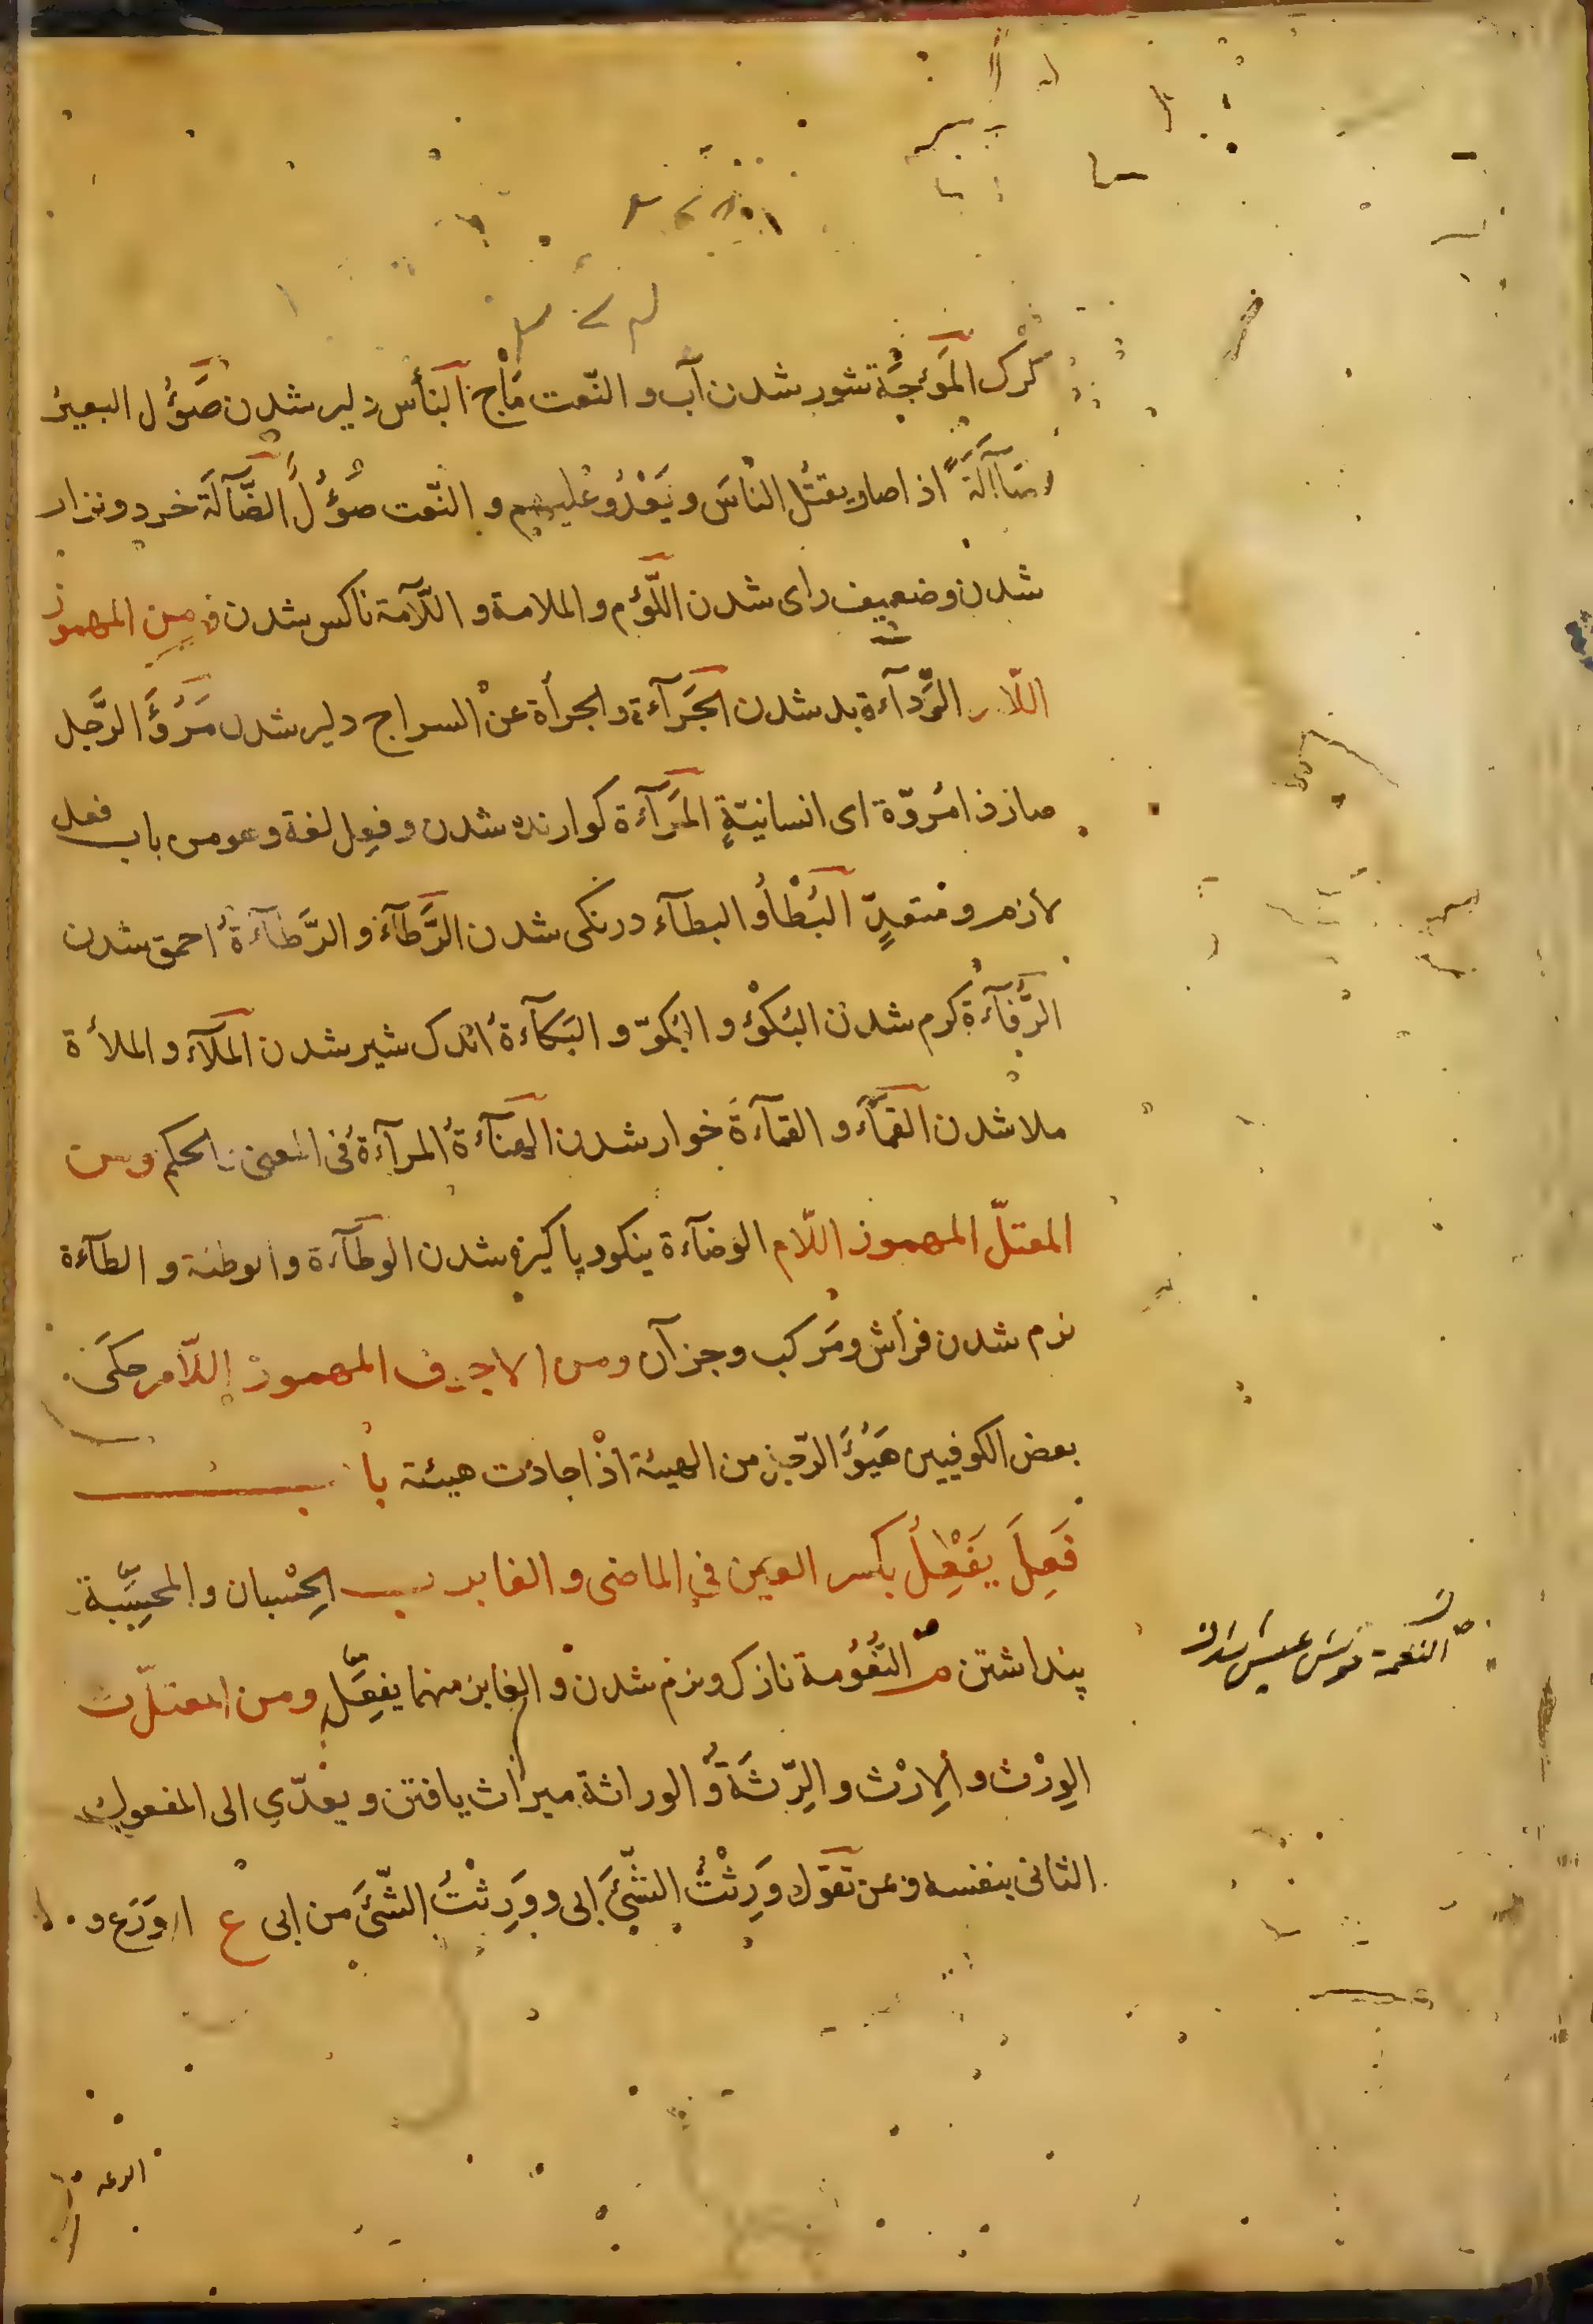 كرك المؤجة شور شدن آب و النّعت مأج البأس دلير شدن صؤل البعير
صآلة اذا صار يقتل الناس و يعدو عليهم و النّعت صؤل الضّآلة خرد و نزار
شدن و ضعيف رای شدن اللّؤم و الملامة و اللّآمة ناكس شدن و من المهموز
اللّام الرّدآءة بد شدن الجَرآءة و الجرأة عن السراج دلير شدن مَرُؤَ الرَّجل
صار ذا مُروّة ای انسانيّةٍ المَرآءة كوارنده شدن و فعِل لغة و هو من باب فعل
لازم و متعدٍّ البُطْأ و البطآء درنكی شدن الرَّطآء و الرَّطآءةُ احمق شدن
الدَّفآءة كرم شدن البَكْؤ و البكوّ و البَكآءة اندک شير شدن الملآء و الملأة
ملا شدن القمآء و القمآءة خوار شدن الهنآءةُ المرآءةُ فی المعنی و الحكم و من
المعتلّ المهموز اللّام الوضآءة نيكو و پاكيزه شدن الوطآءة و الوطئة و الطآءة
نرم شدن فراش و مَركب و جز آن و من الاجوف المهموز اللّام حكی
بعض الكوفيين هَيُؤَ الرّجل من الهيئة اذا جادت هيئته باب
فَعِلَ يَفْعِلُ بكسر العين فی الماضی و الغابر ب الحِسْبان و المحسِبة
پنداشتن م النُّعُومة نازک و نرم شدن و الغابر منهما يفعِل و من المعتلّ ث
الوِرْث و الاِرْث و الرِّثَة و الوراثة ميراث يافتن و يعدّی الی المفعول
الثانی بنفسه و بمن تقول وَرِثْتُ الشّئَ ابی و وَرِثْتُ الشّئَ من ابی ع
النعمة خوش عيش شدن